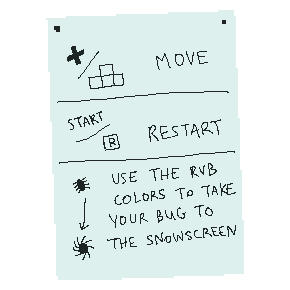 MOVE
START
R
RESTART
USE THE RVB
COLORS TO TAKE
YOUR BUG TO
THE SNOWSCREEN